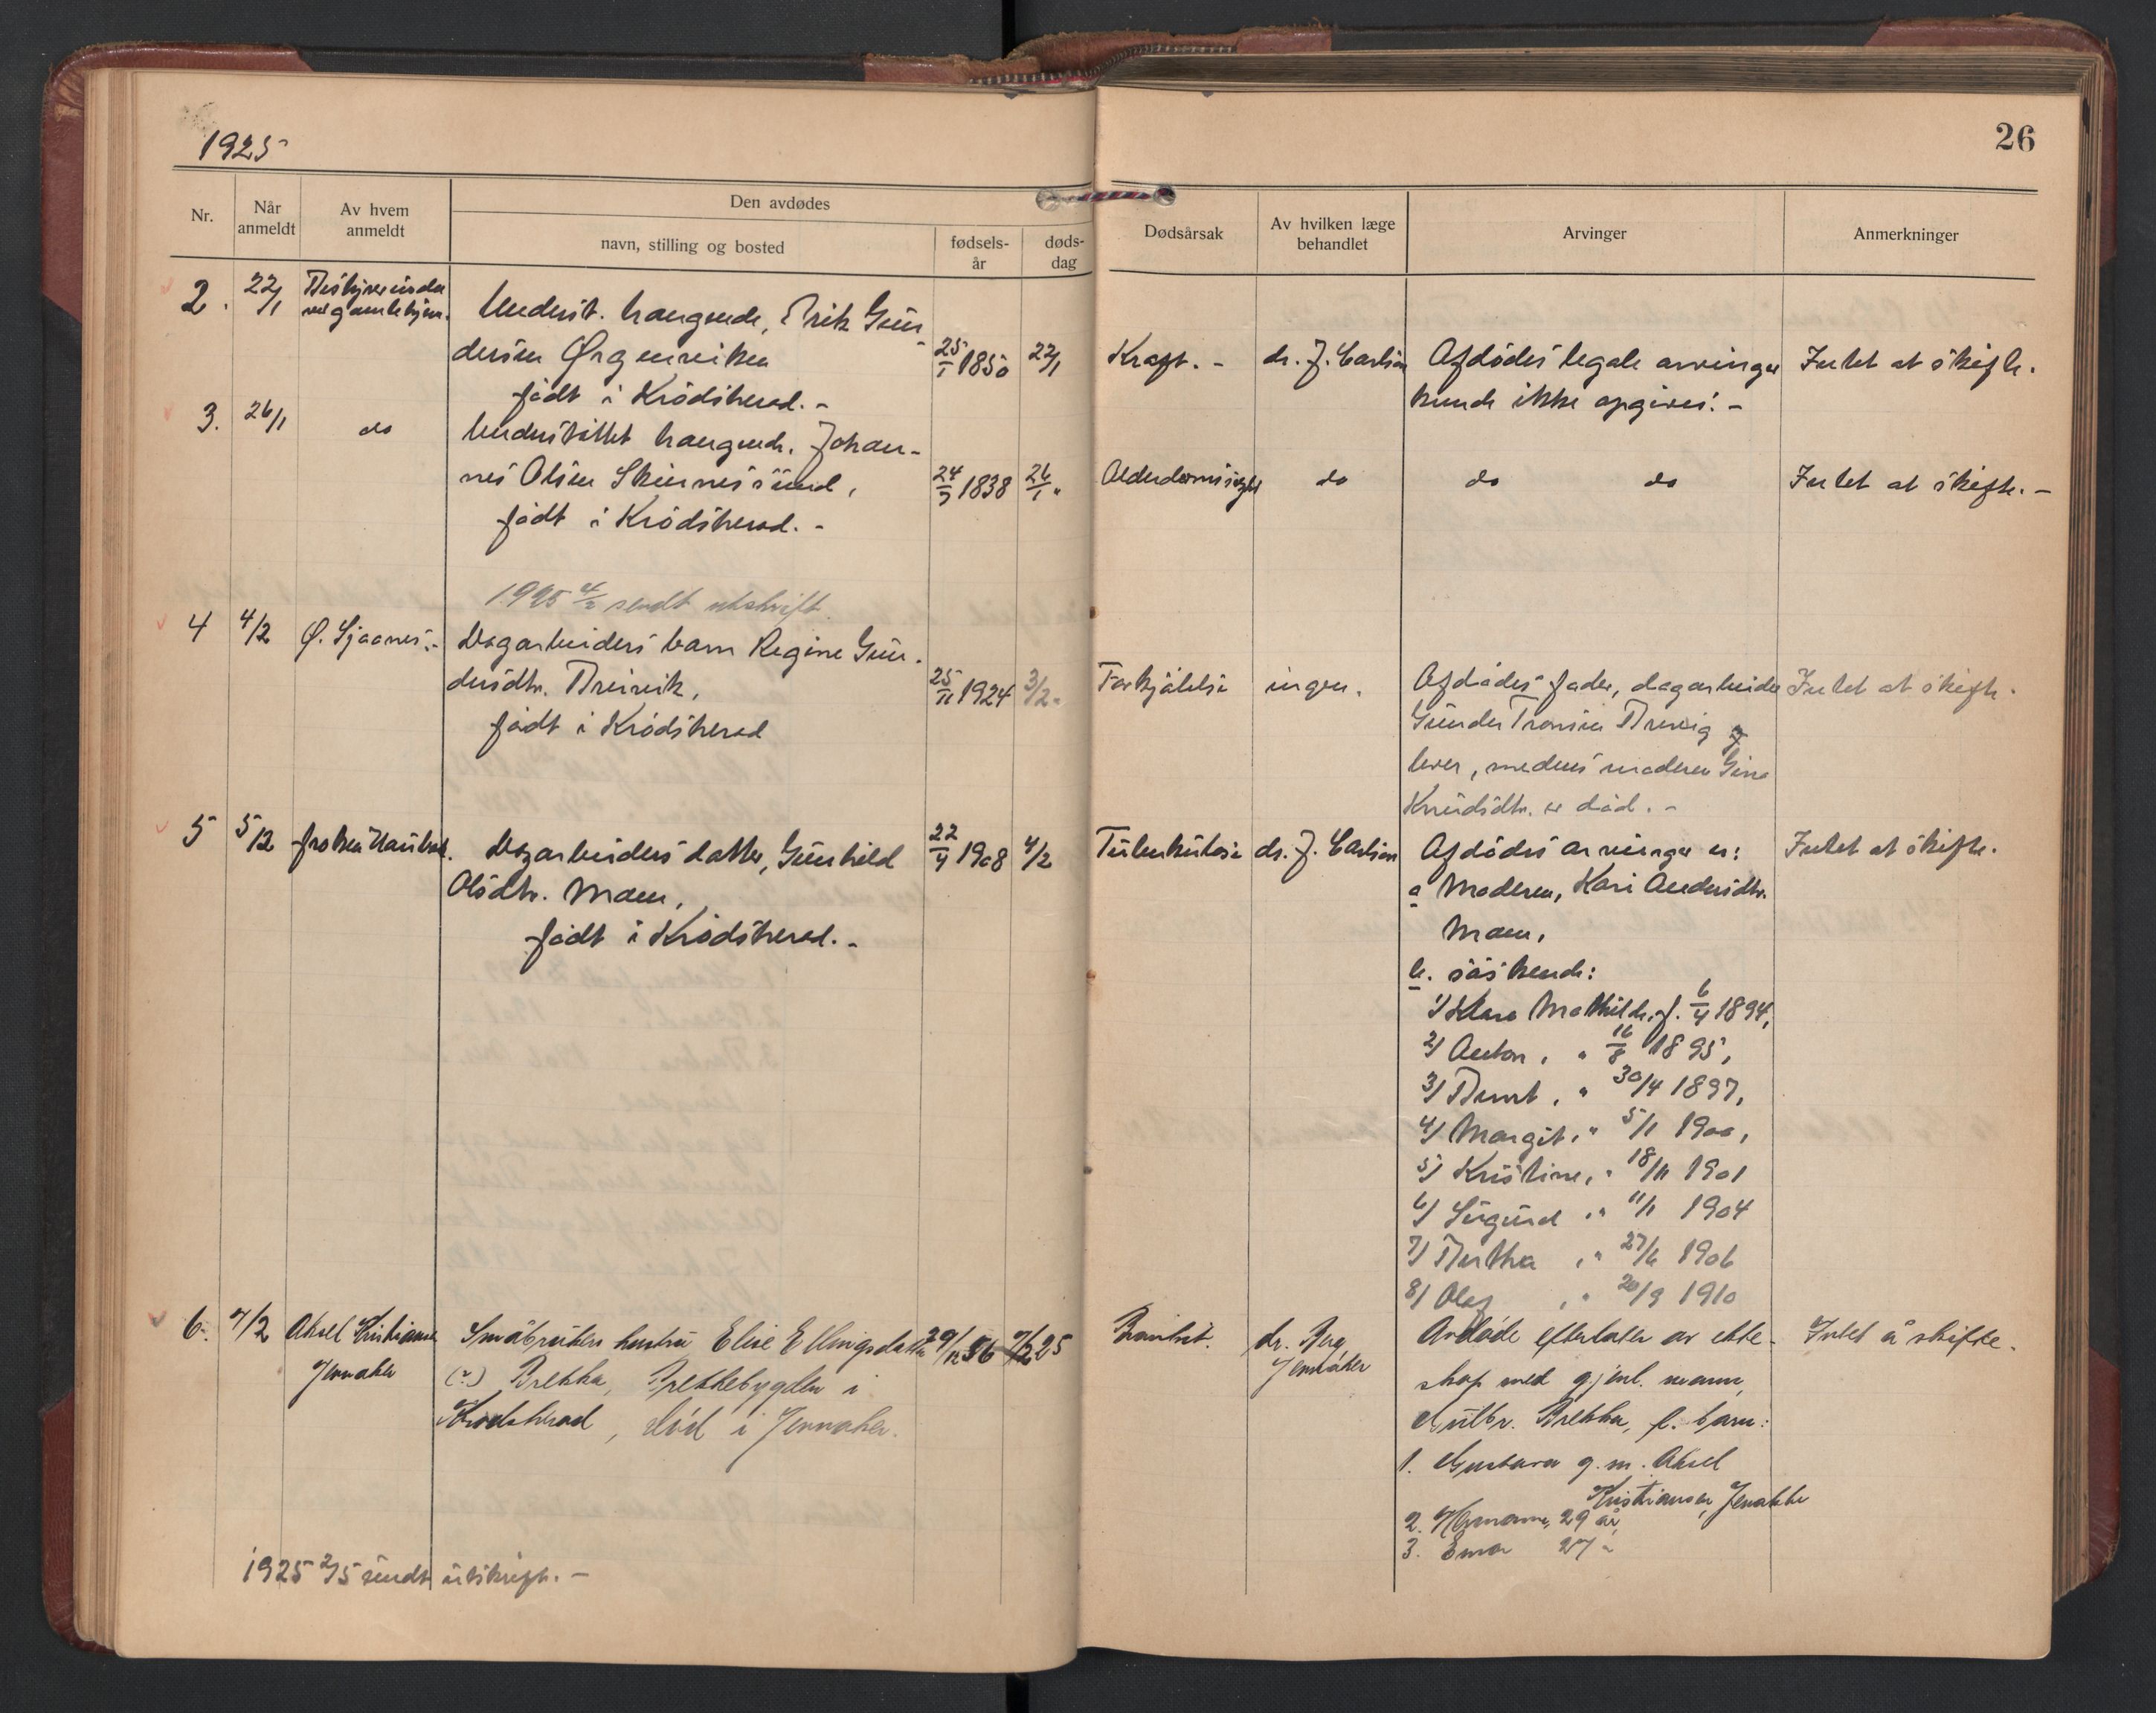 1925
26
Nr.
Når anmeldt
Av hvem anmeldt
Den avdødes
navn, stilling og bosted
fødsels-år
døds-dag
Dødsårsak
Av hvilken læge behandlet
Arvinger
Anmerkninger
2. 22/1 Bestyrerinden
ved gamlehjem.
Underst. trængende, Erik Gun-
dersen Ørgenviken 25/1 1850 22/1
født i Krødsherad. -
Kræft. - dr. J. Carlsen Afdødes legale arvinger Intet at skifte.
kunde ikke opgives. -
3. 26/1 do Understøttet trængende. Johan-
nes Olsen Skinnessund, 24/3 1838 26/1 "
født i Krødsherad. -
Alderdomssvaghet do do do Intet at skifte. -
1925 4/2 sendt utskrift
4 4/2 Ø. Sjaanes. - Dagarbeiders barn Regine Gun-
dersdtr. Breivik, 25/11 1924 3/2 "
født i Krødsherad
Forkjølelse ingen. Afdødes fader, dagarbeider Intet at skifte.
Gunder Tronsen Brevig
lever, medens moderen Gina
Knudsdtr. er død. -
5 5/2 frøken Dagarbeiders datter, Gunhild 22/4 1908 4/2
Olsdtr. Moen,
født i Krødsherad. -
Tuberkulose dr. J. Carlsen Afdødes arvinger er: Intet at skifte.
a Moderen, Kari Andersdtr.
Moen,
b. søskende:
1/ Klara Mathilde, f. 6/4 1894,
2/ Anton, " 16/8 1895,
3/ Bernt, " 30/4 1897,
4/ Margit, " 5/1 1900,
5/ Kristine, " 18/11 1901
6/ Sigurd " 11/1 1904
7/ Bertha, " 27/6 1906
8/ Olaf, " 20/9 1910
6. 7/2 Aksel Kristiansen
Jevnaker
Småbrukers hustru Elise Ellingsdatter 29/12 56 7/2 25
(?) Brekka, Brekkebygden i
Krødsherad, død i Jevnaker.
Bronkit. dr. Berg,
Jevnaker
Avdøde efterlater av ekte- Intet å skifte.
skap med gjenl. mann,
Gulbr. Brekka, fl. barn:
1. Gustava g. m. Aksel
Kristiansen, Jevnaker
2. Hermann, 29 år,
3. Emma 27 "
1925 2/5 sendt utskrift. -